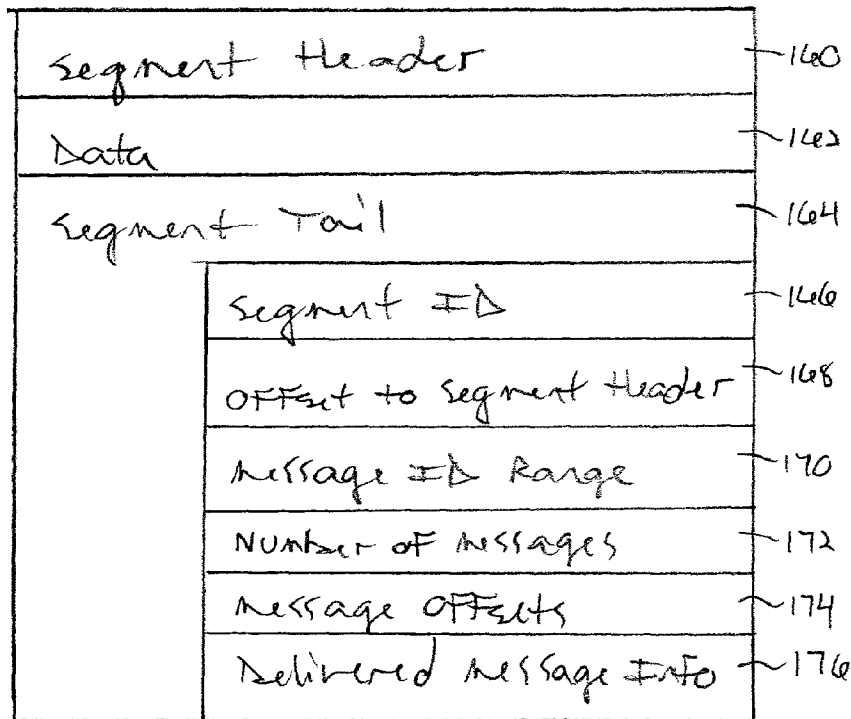 Segment Header 160
Data 162
Segment Tail 164
Segment ID 166
OFFset to Segment Header 168
Message ID Range 170
Number of Messages 172
Message OFFsets 174
Delivered Message Info 176